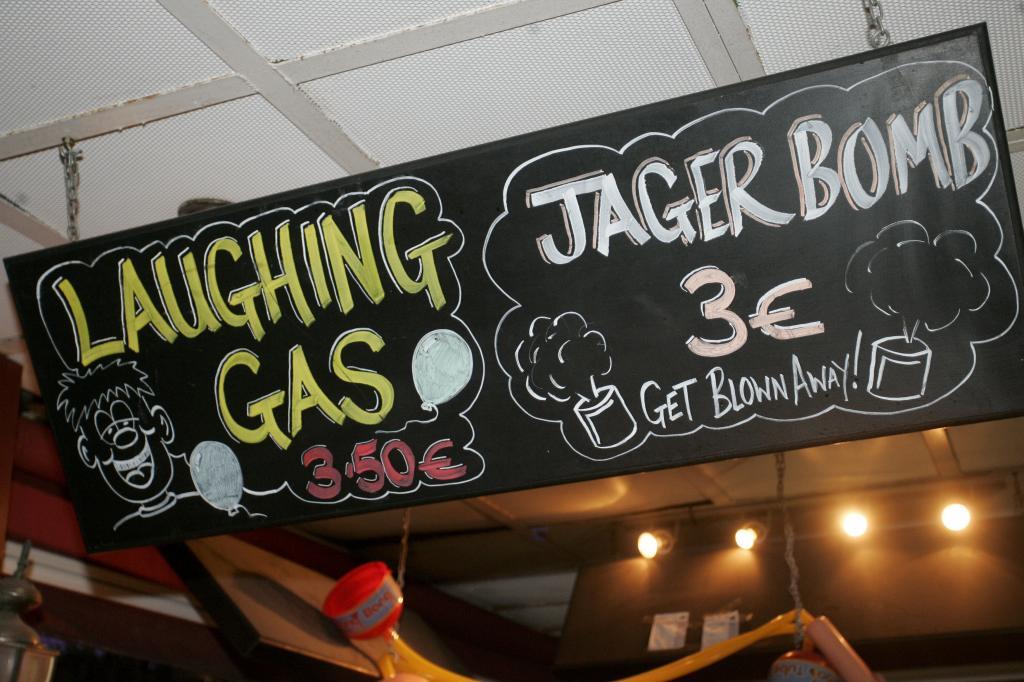 LAUGHING
GAS
3.50€
JAGER BOMB
3€
GET BLOWN AWAY!